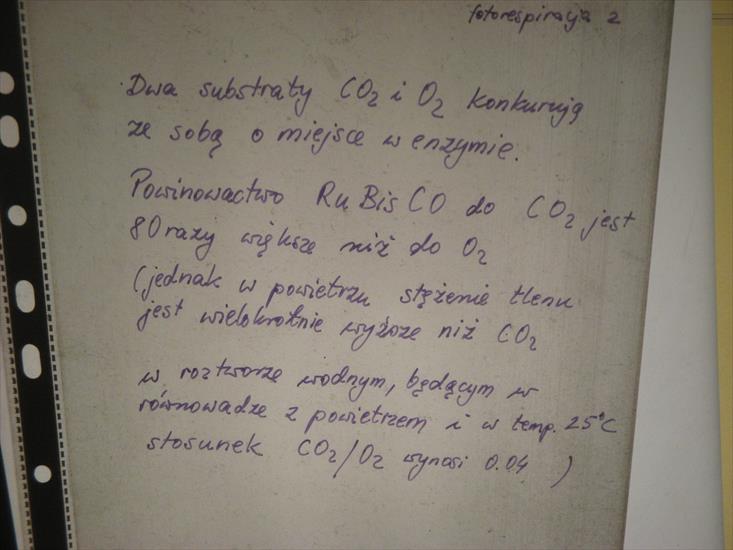 fotorespiracja 2
Dwa substraty CO2 i O2 konkurują
ze sobą o miejsce w enzymie.
Powinowactwo RuBisCO do CO2 jest
80 razy większe niż do O2
(jednak w powietrzu stężenie tlenu
jest wielokrotnie wyższe niż CO2
w roztworze wodnym, będącym w
równowadze z powietrzem i w temp. 25°C
stosunek CO2/O2 wynosi 0.04 )